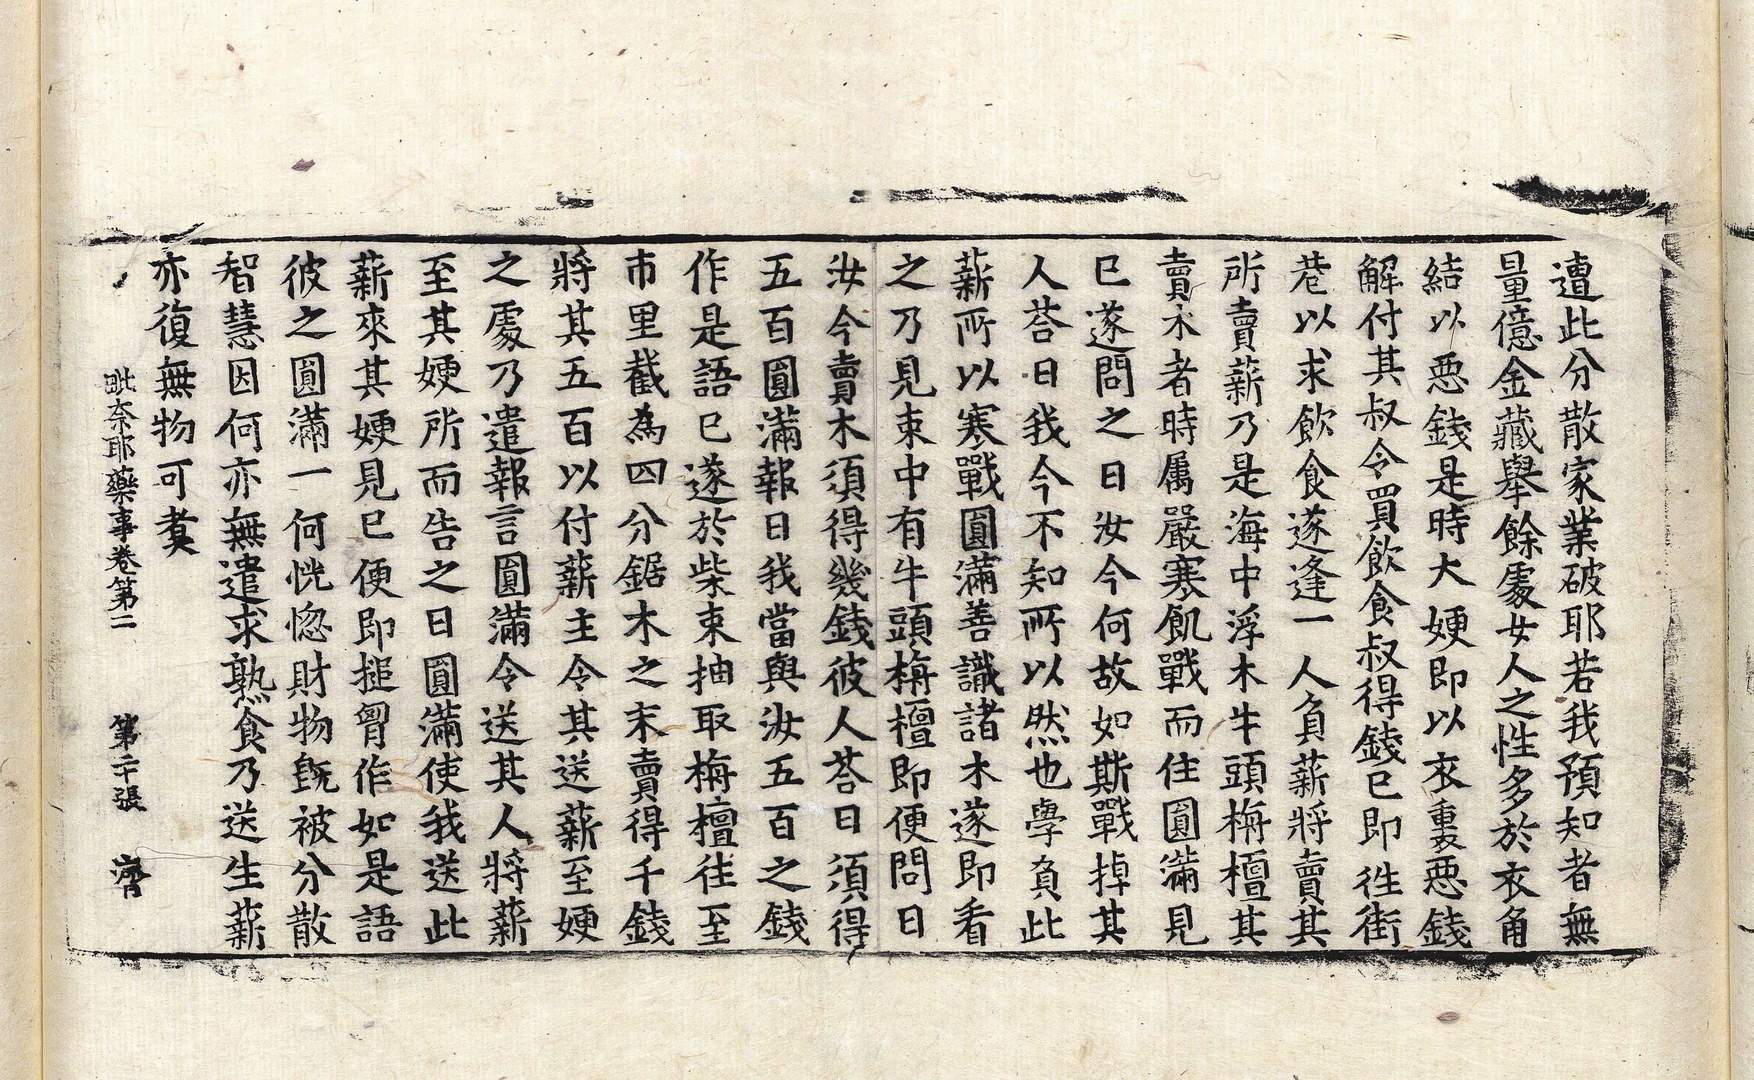 遭此分散家業破耶若我預知者無
量億金藏舉餘處女人之性多於衣角
結以惡錢是時大㛐即以衣裏惡錢
解付其叔令買飲食叔得錢已即往街
巷以求飲食遂逢一人負薪將賣其
所賣薪乃是海中浮木牛頭栴檀其
賣木者時属嚴寒飢戰而住圓滿見
已遂問之曰汝今何故如斯戰掉其
人荅曰我今不知所以然也學負此
薪所以寒戰圓滿善識諸木遂即看
之乃見束中有牛頭栴檀即便問曰
汝今賣木須得幾錢彼人荅曰須得
五百圓滿報曰我當與汝五百之錢
作是語已遂於柴束抽取栴檀往至
市里截為四分鋸木之末賣得千錢
將其五百以付薪主令其送薪至㛐
之處乃遣報言圓滿令送其人將薪
至其㛐所而告之曰圓滿使我送此
薪來其㛐見已便即搥胷作如是語
彼之圓滿一何恍惚財物旣被分散
智慧因何亦無遣求熟食乃送生薪
亦復無物可煑
毗奈耶藥事卷第二 第二十張 濟